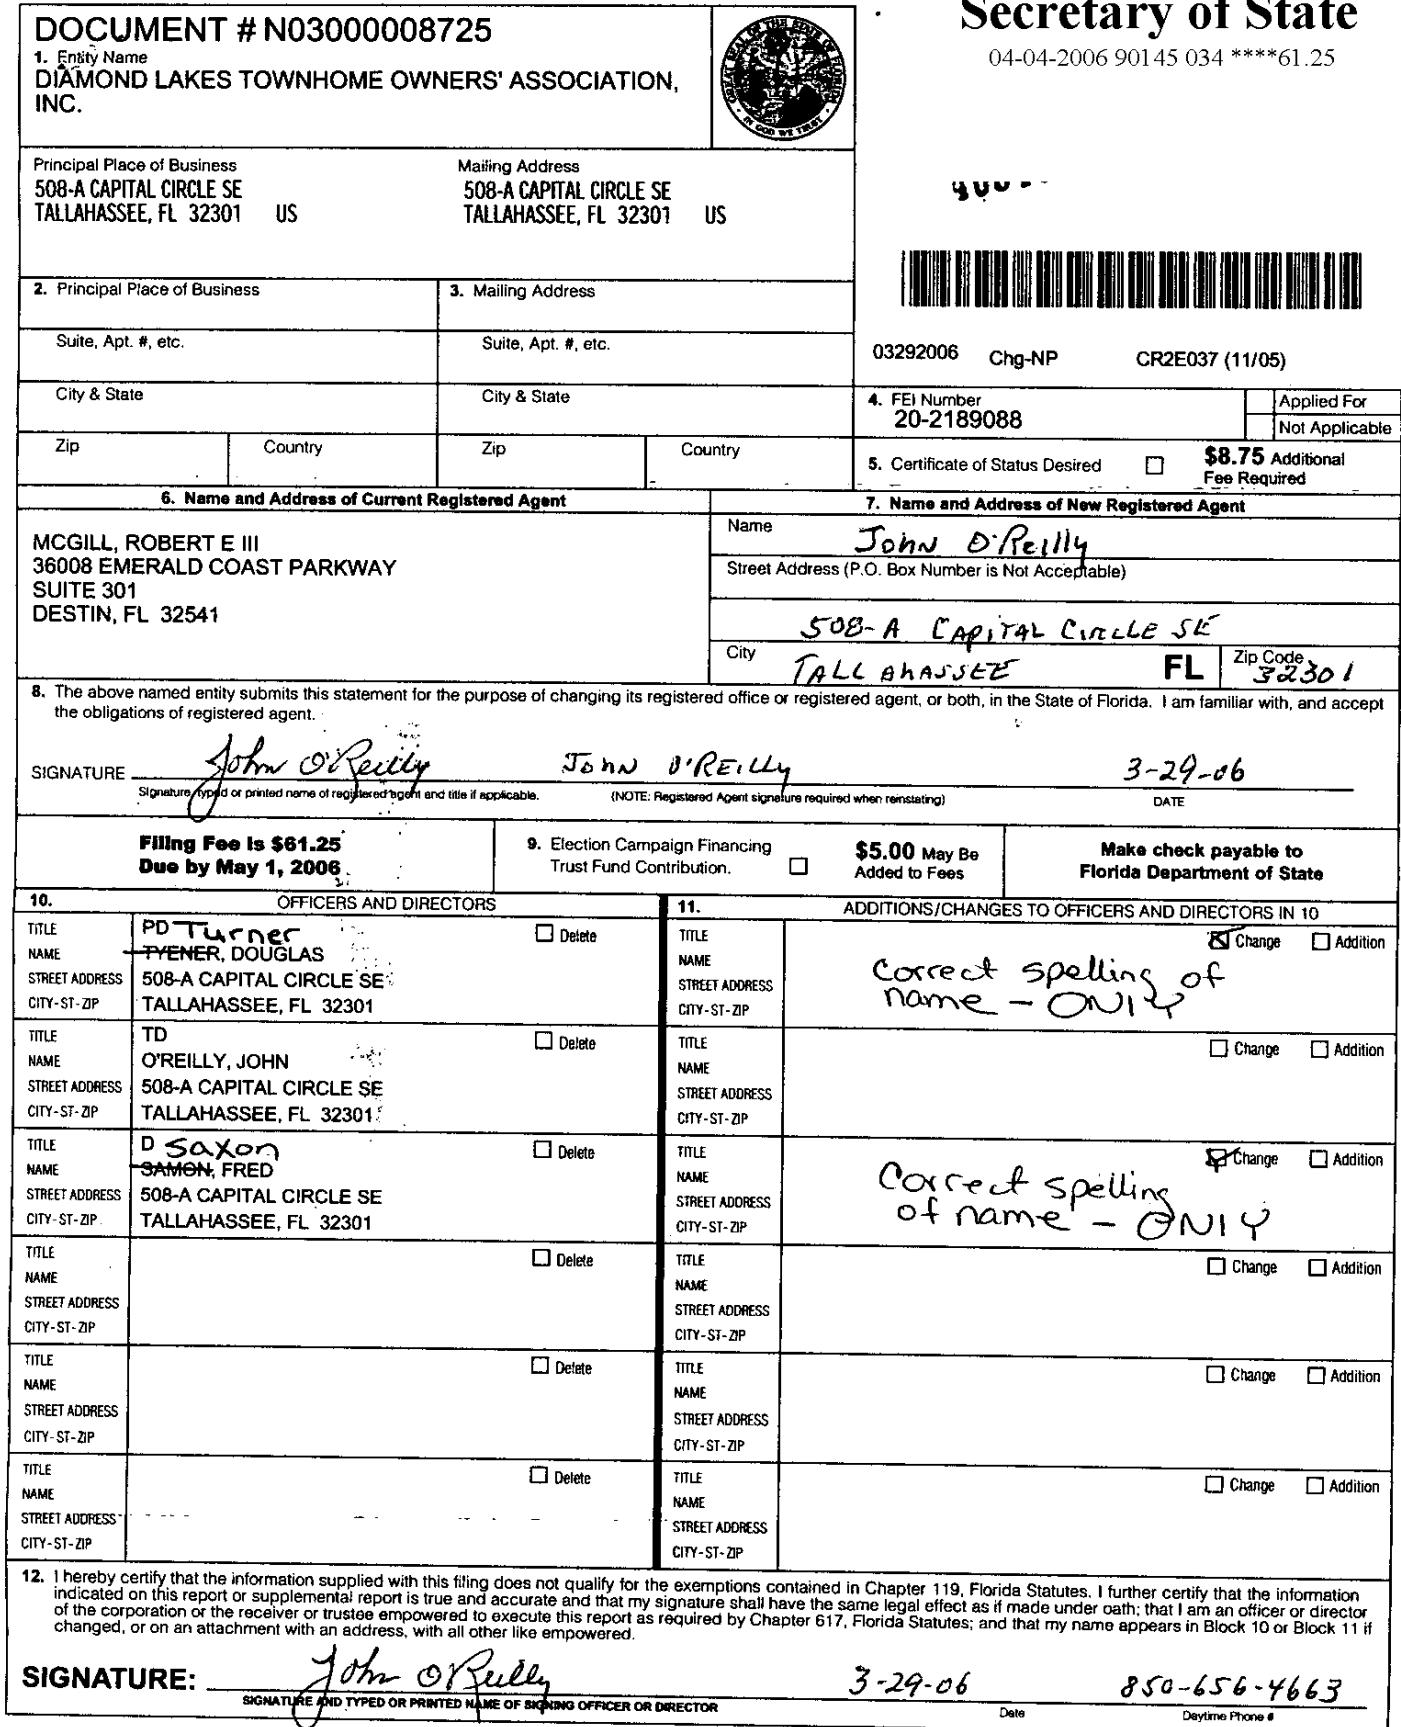 Secretary of State
04-04-2006 90145 034 ****61.25
DOCUMENT # N03000008725
1. Entity Name
DIAMOND LAKES TOWNHOME OWNERS' ASSOCIATION,
INC.
GREAT SEAL OF THE STATE OF FLORIDA
IN GOD WE TRUST
Principal Place of Business
508-A CAPITAL CIRCLE SE
TALLAHASSEE, FL 32301 US
Mailing Address
508-A CAPITAL CIRCLE SE
TALLAHASSEE, FL 32301 US
2. Principal Place of Business
3. Mailing Address
Suite, Apt. #, etc.
Suite, Apt. #, etc.
City & State
City & State
Zip Country
Zip Country
03292006 Chg-NP CR2E037 (11/05)
4. FEI Number
20-2189088
Applied For
Not Applicable
5. Certificate of Status Desired
$8.75 Additional
Fee Required
6. Name and Address of Current Registered Agent
MCGILL, ROBERT E III
36008 EMERALD COAST PARKWAY
SUITE 301
DESTIN, FL 32541
7. Name and Address of New Registered Agent
Name
John O'Reilly
Street Address (P.O. Box Number is Not Acceptable)
508-A CAPITAL CIRCLE SE
City TALLAHASSEE FL Zip Code 32301
8. The above named entity submits this statement for the purpose of changing its registered office or registered agent, or both, in the State of Florida. I am familiar with, and accept
the obligations of registered agent.
SIGNATURE John O'Reilly JOHN O'REILLY 3-29-06
Signature, typed or printed name of registered agent and title if applicable. (NOTE: Registered Agent signature required when reinstating) DATE
Filing Fee is $61.25
Due by May 1, 2006
9. Election Campaign Financing
Trust Fund Contribution.
$5.00 May Be
Added to Fees
Make check payable to
Florida Department of State
10. OFFICERS AND DIRECTORS
11. ADDITIONS/CHANGES TO OFFICERS AND DIRECTORS IN 10
TITLE PD Turner Delete
NAME TYENER, DOUGLAS
STREET ADDRESS 508-A CAPITAL CIRCLE SE
CITY-ST-ZIP TALLAHASSEE, FL 32301
TITLE Change Addition
NAME
STREET ADDRESS
CITY-ST-ZIP
Correct spelling of
name - ONLY
TITLE TD Delete
NAME O'REILLY, JOHN
STREET ADDRESS 508-A CAPITAL CIRCLE SE
CITY-ST-ZIP TALLAHASSEE, FL 32301
TITLE Change Addition
NAME
STREET ADDRESS
CITY-ST-ZIP
TITLE D Saxon Delete
NAME SAMON, FRED
STREET ADDRESS 508-A CAPITAL CIRCLE SE
CITY-ST-ZIP TALLAHASSEE, FL 32301
TITLE Change Addition
NAME
STREET ADDRESS
CITY-ST-ZIP
Correct spelling
of name - ONLY
TITLE Delete
NAME
STREET ADDRESS
CITY-ST-ZIP
TITLE Change Addition
NAME
STREET ADDRESS
CITY-ST-ZIP
TITLE Delete
NAME
STREET ADDRESS
CITY-ST-ZIP
TITLE Change Addition
NAME
STREET ADDRESS
CITY-ST-ZIP
TITLE Delete
NAME
STREET ADDRESS
CITY-ST-ZIP
TITLE Change Addition
NAME
STREET ADDRESS
CITY-ST-ZIP
12. I hereby certify that the information supplied with this filing does not qualify for the exemptions contained in Chapter 119, Florida Statutes. I further certify that the information
indicated on this report or supplemental report is true and accurate and that my signature shall have the same legal effect as if made under oath; that I am an officer or director
of the corporation or the receiver or trustee empowered to execute this report as required by Chapter 617, Florida Statutes; and that my name appears in Block 10 or Block 11 if
changed, or on an attachment with an address, with all other like empowered.
SIGNATURE: John O'Reilly 3-29-06 850-656-4663
SIGNATURE AND TYPED OR PRINTED NAME OF SIGNING OFFICER OR DIRECTOR Date Daytime Phone #